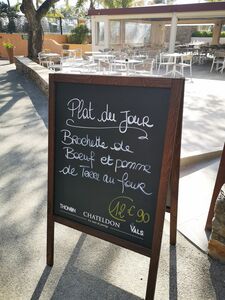 Plat du Jour
Brochette de
Boeuf et pomme
de Terre au four
12€90
THONON
CHATELDON
VALS